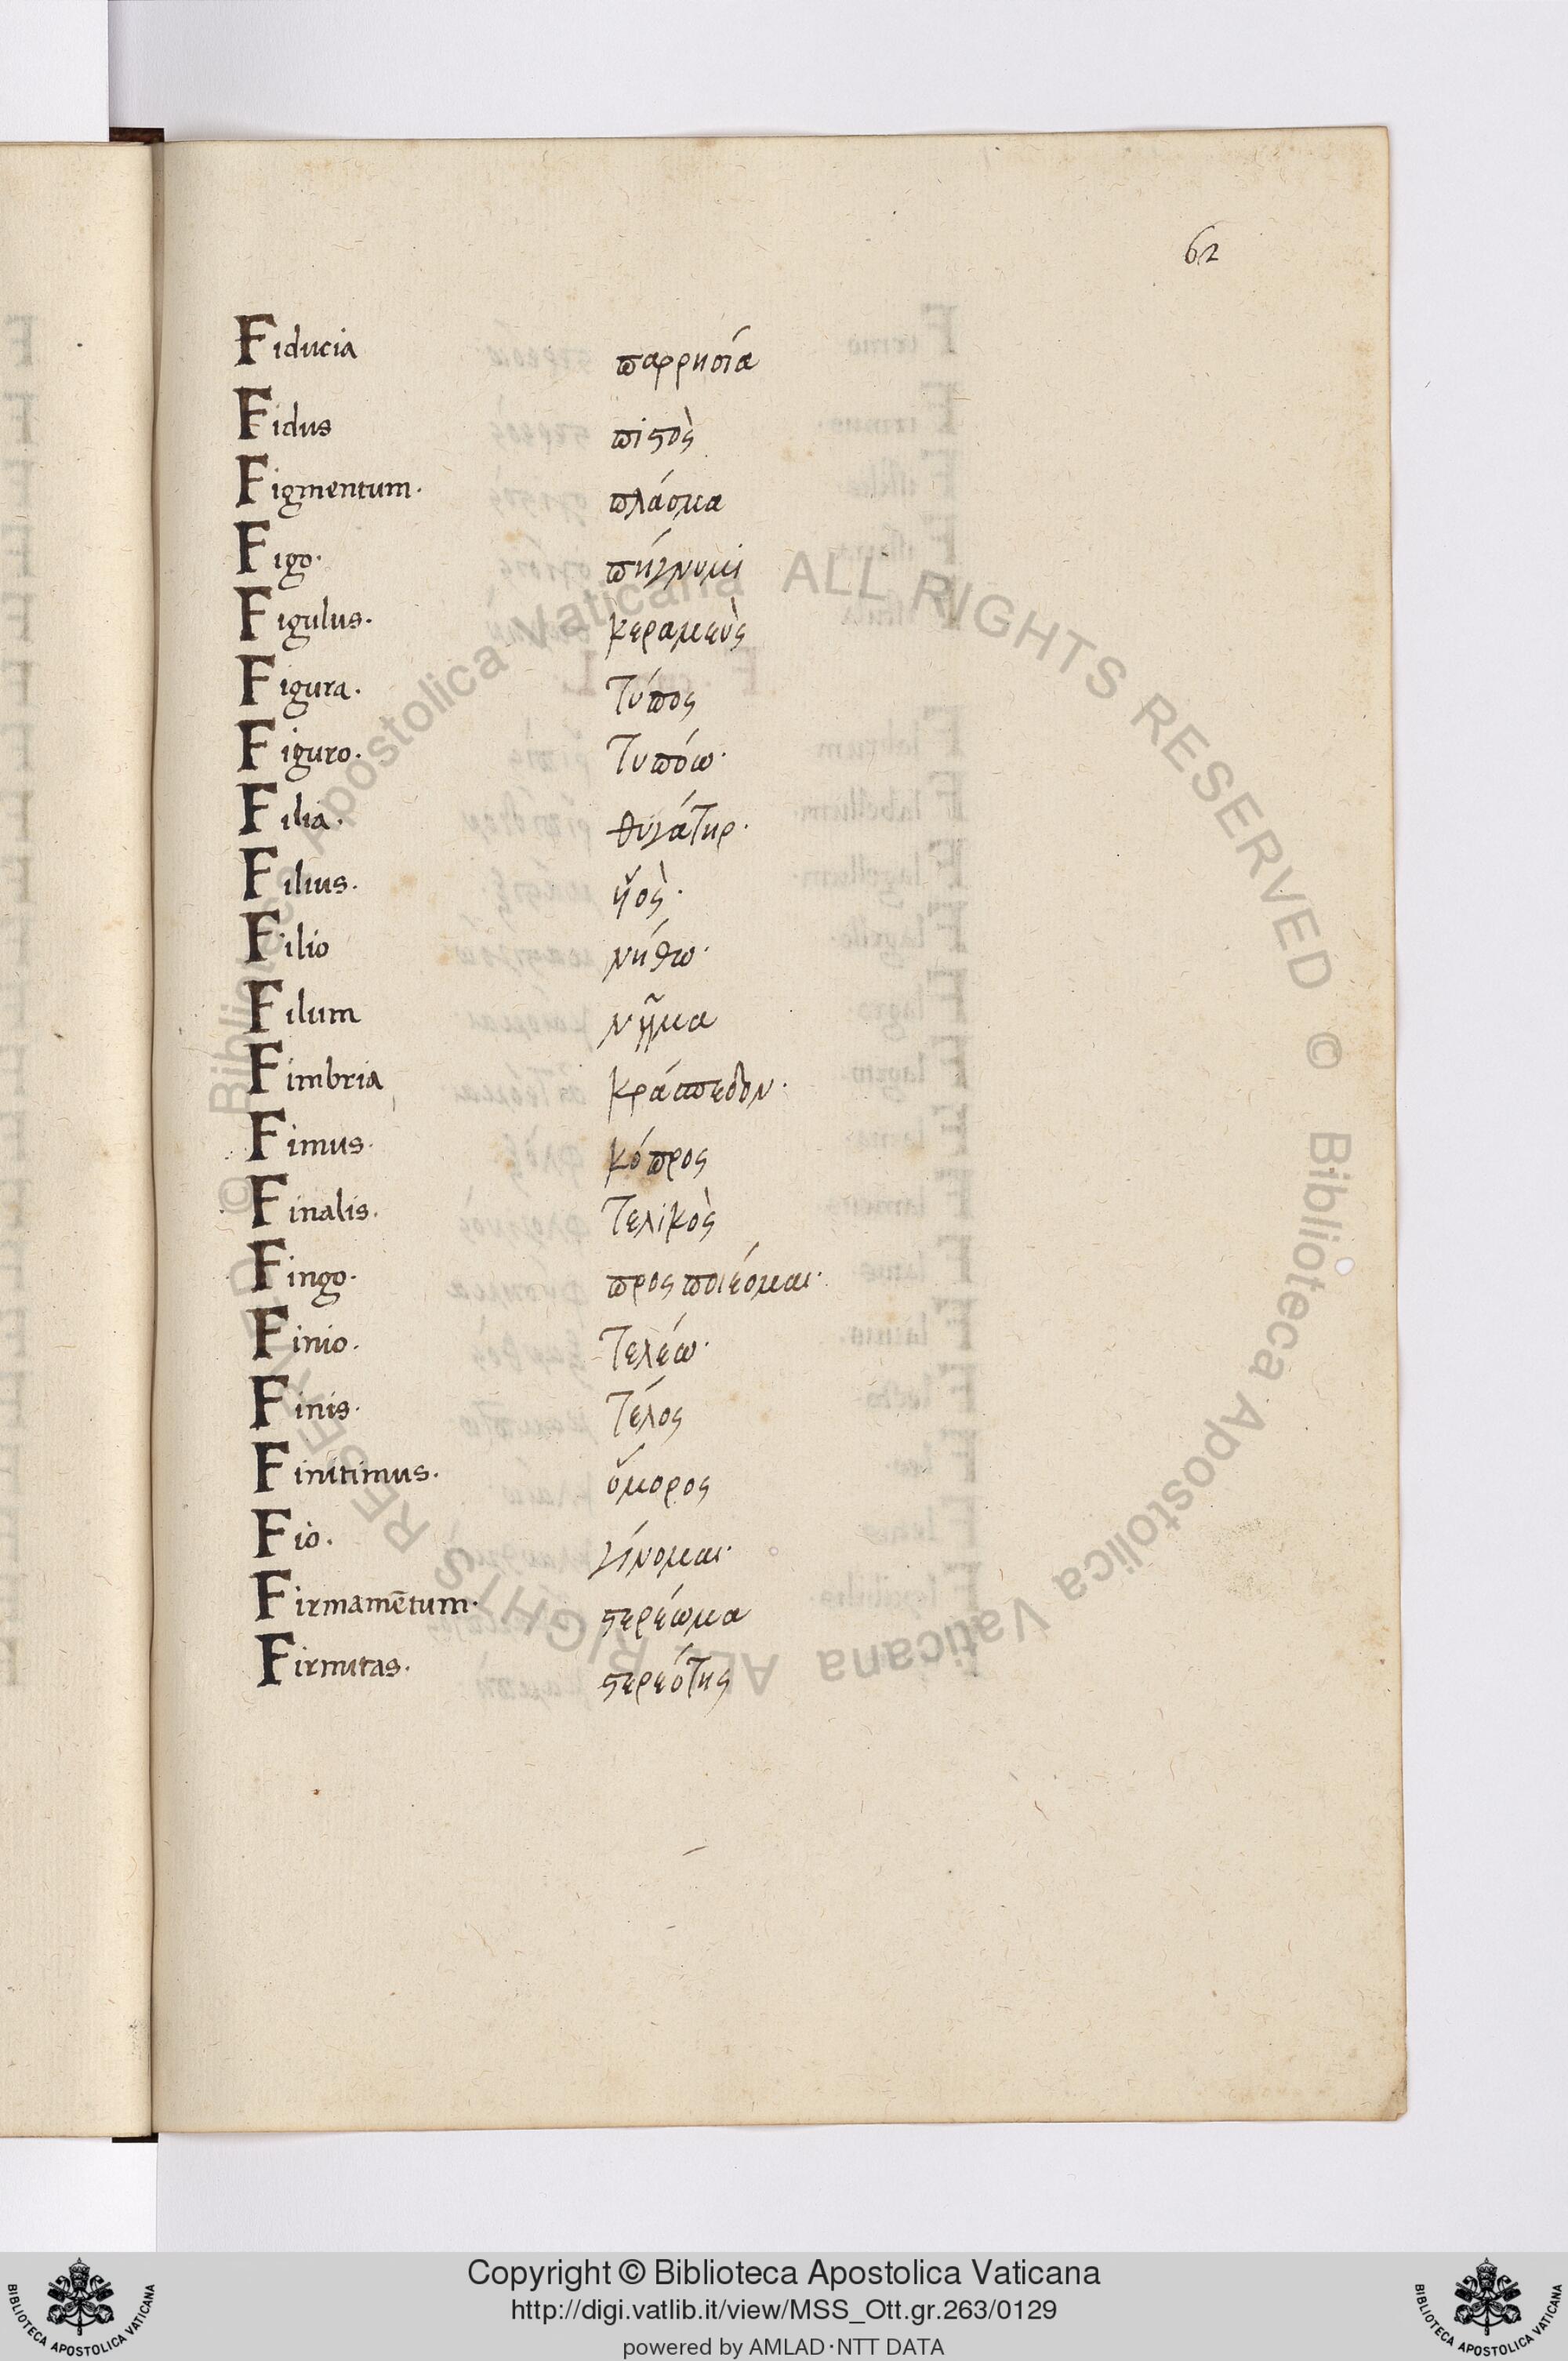 62
Fiducia παρρησία
Fidus πιστὸς
Figmentum· πλάσμα
Figo· πήγνυμι
Figulus· κεραμεὺς
Figura· τύπος
Figuro· τυπόω·
Filia· θυγάτηρ·
Filius· ὑὸς·
Filio νήθω·
Filum νῆμα
Fimbria κράσπεδον·
Fimus· κόπρος
Finalis· τελικὸς
Fingo· προςποιέομαι·
Finio· τελέω·
Finis· τέλος
Finitimus· ὅμορος
Fio· γίνομαι·
Firmamētum· στερέωμα
Firmitas· στερεότης
© Biblioteca Apostolica Vaticana ALL RIGHTS RESERVED © Biblioteca Apostolica Vaticana ALL RIGHTS RESERVED
BIBLIOTECA APOSTOLICA VATICANA
Copyright © Biblioteca Apostolica Vaticana
http://digi.vatlib.it/view/MSS_Ott.gr.263/0129
powered by AMLAD·NTT DATA
BIBLIOTECA APOSTOLICA VATICANA